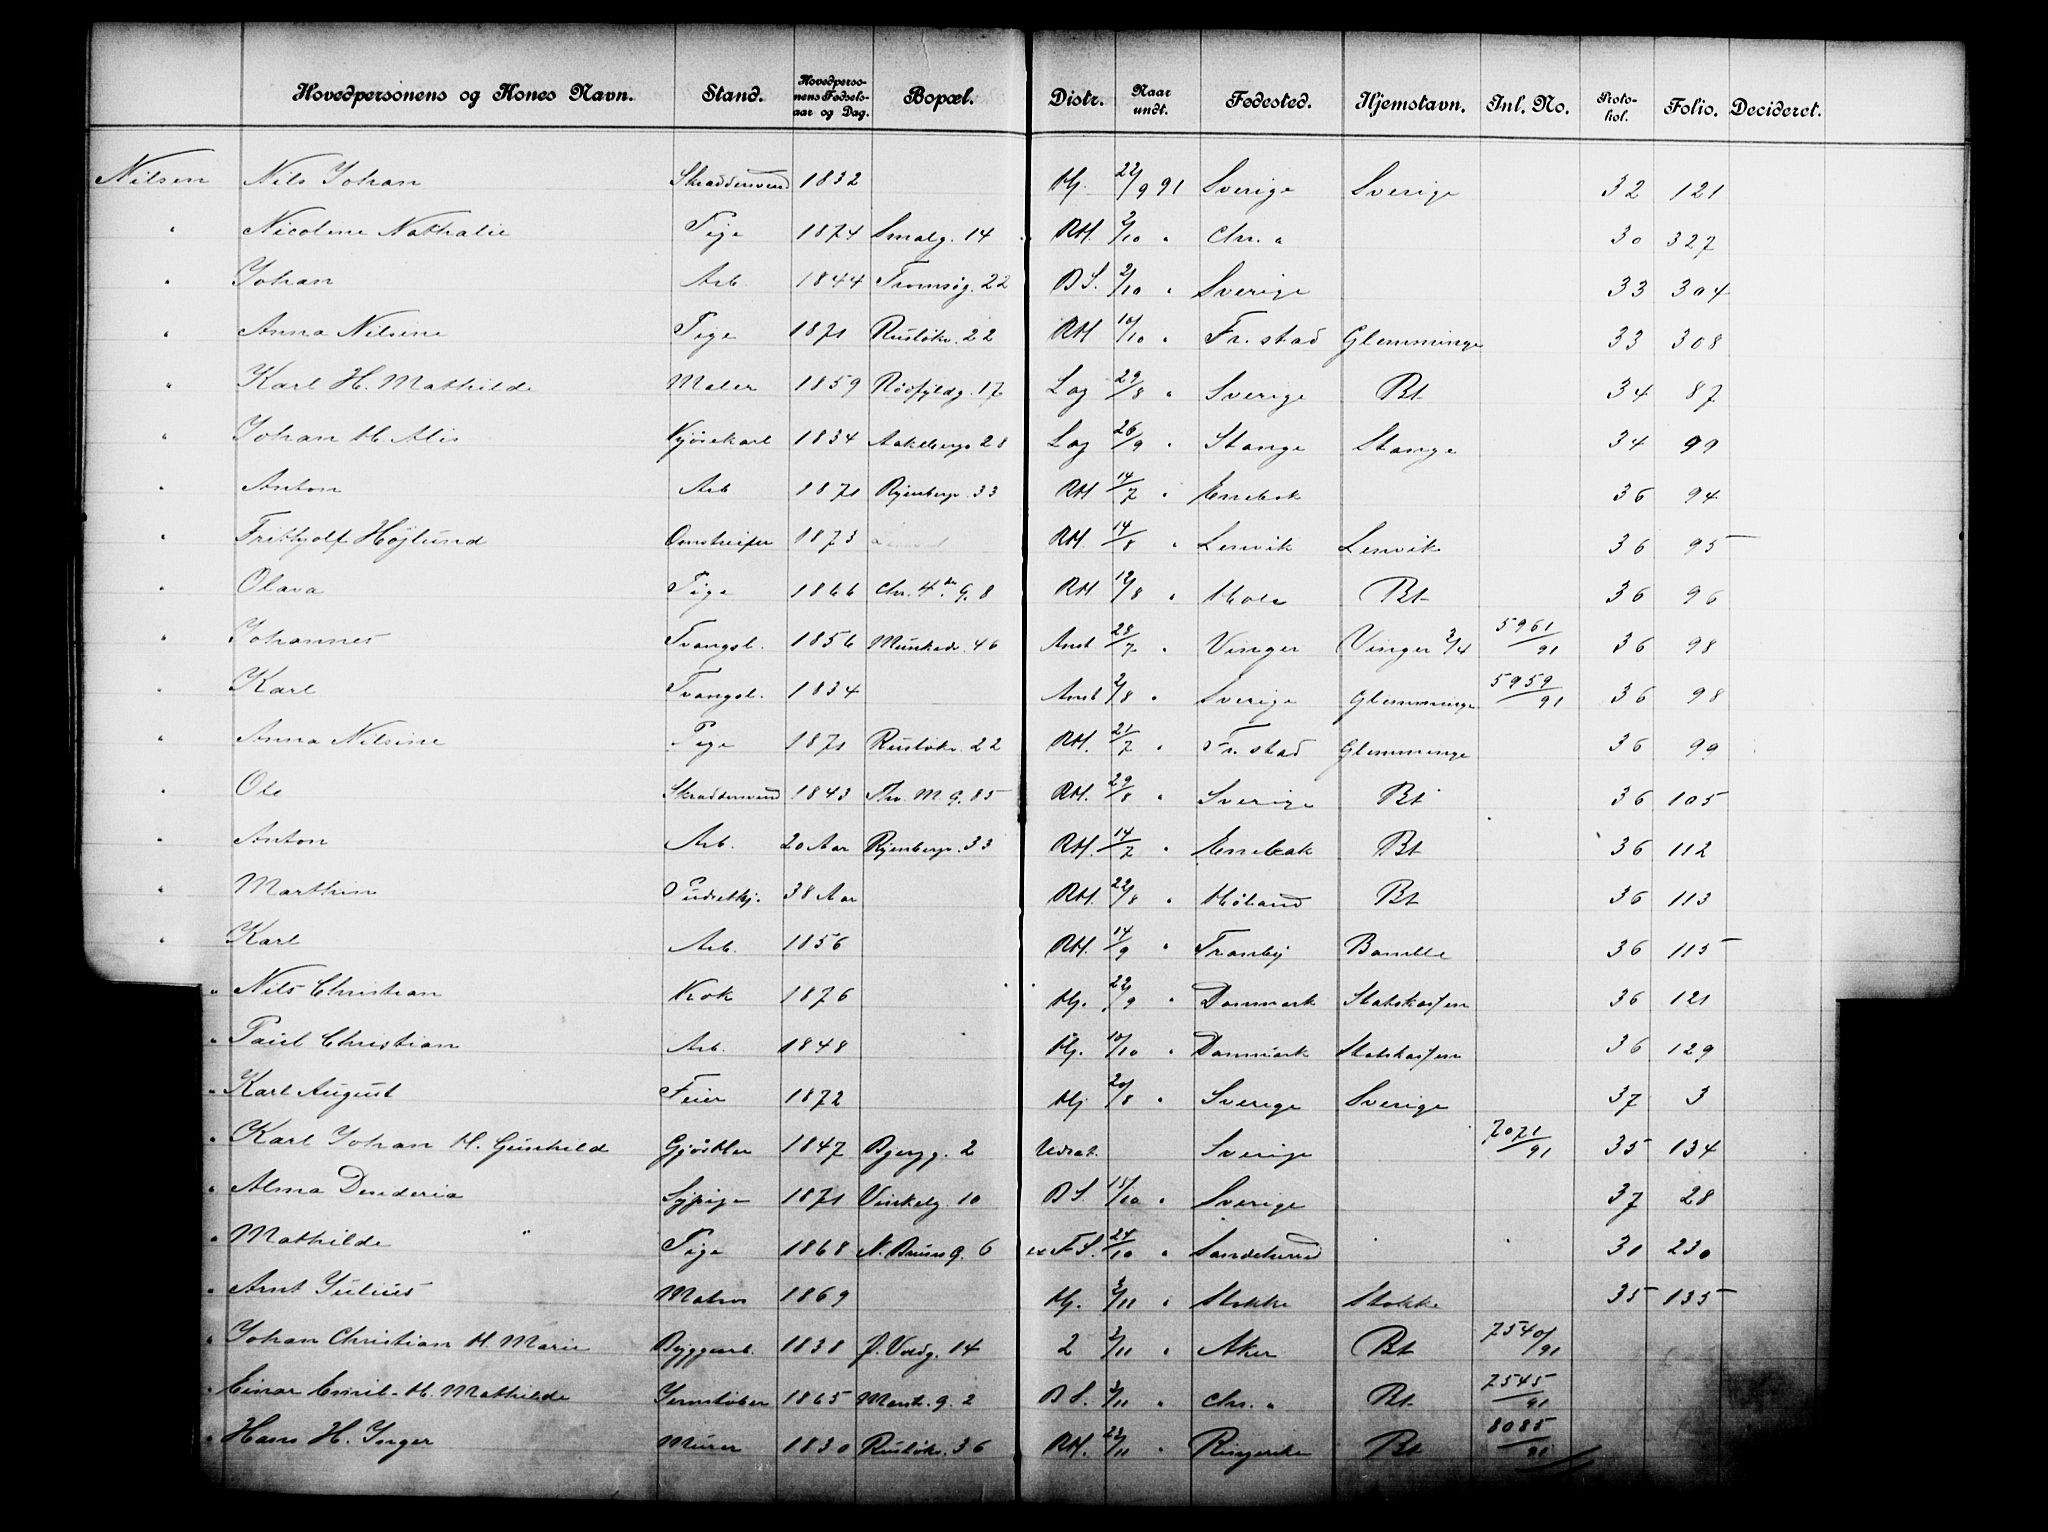 Hovedpersonens og Kones Navn. Stand. Hovedpersonens Fødselsaar og Dag. Bopæl. Distr. Naar undt. Fødested. Hjemstavn. Inl. No. Protokol. Folio. Decideret.
Nilsen Nils Johan Skraddersvend 1832 Hj. 22/9 91 Sverige Sverige 32 121
" Nicoline Nathalie Pige 1874 Smalg. 14 RH. 2/10 " Chr. a 30 327
" Johan Arb. 1844 Tromsøg. 22 BS. 2/10 " Sverige 33 304
" Anna Nilsine Pige 1871 Rusløkv. 22 RH 10/10 " Fr. stad Glemminge 33 308
" Karl H. Mathilde Maler 1859 Rødfyldg. 17 Lag 29/8 " Sverige Bt 34 87
" Johan H. Alis Kjørekarl 1834 Aakebergv 28 Lag 26/9 " Stange Stange 34 99
" Anton Arb 1871 Ryenbergv. 33 RH 14/7 " Enebak 36 94
" Frithjolf Højlund Omstreifer 1873 RH. 14/8 " Lenvik Lenvik 36 95
" Olava Pige 1866 Chr. 4de G. 8 RH 19/8 " Hole Bt 36 96
" Johannes Tvangsl. 1856 Munkedv. 46 Anst 28/7 " Vinger Vinger 3/4 5961/91 36 98
" Karl Tvangsl. 1834 Anst 2/8 " Sverige Glemminge 5959/91 36 98
" Anna Nilsine Pige 1871 Rusløkv. 22 RH. 21/7 " Fr. stad Glemminge 36 99
" Ole Skraddersvend 1843 Thv. M. G. 85 RH. 29/8 " Sverige Bt 36 105
" Anton Arb. 20 Aar Ryenbergv. 33 RH. 14/7 " Enebak Bt 36 112
" Marthin 38 Aar RH. 22/8 " Høland Bt 36 113
" Karl Arb. 1856 RH. 14/9 " Tranby Bamble 36 115
" Nils Christian Kok 1876 Hj. 22/9 " Danmark Statskassen 36 121
" Paul Christian Arb. 1848 Hj. 10/10 " Danmark Statskassen 36 129
" Karl August Feier 1872 Hj 20/8 " Sverige Sverige 37 3
" Karl Johan H. Gunhild Gjørtler 1847 Bjergg. 2 Udsat Sverige 7071/91 35 134
" Alma Denderia Sypige 1871 Vinkelg. 10 BS. 15/10 " Sverige 37 28
" Mathilde " Pige 1868 N. Bruns G. 6 FS. 24/10 " Sandeherred 31 230
" Arnt Julius Matros 1869 Hj. 3/11 " Stokke Stokke 35 135
" Johan Christian H. Marie Byggearb. 1838 P. Voldg. 14 2 3/11 " Aker Bt 7540/91
" Einar Emil H. Mathilde Jernstøber 1865 Mark. G. 2 BS. 3/11 " Chr. a Bt 7545/91
" Hans H. Inger Murer 1830 Rusløkv. 36 RH. 23/11 " Ringerike Bt 8085/91